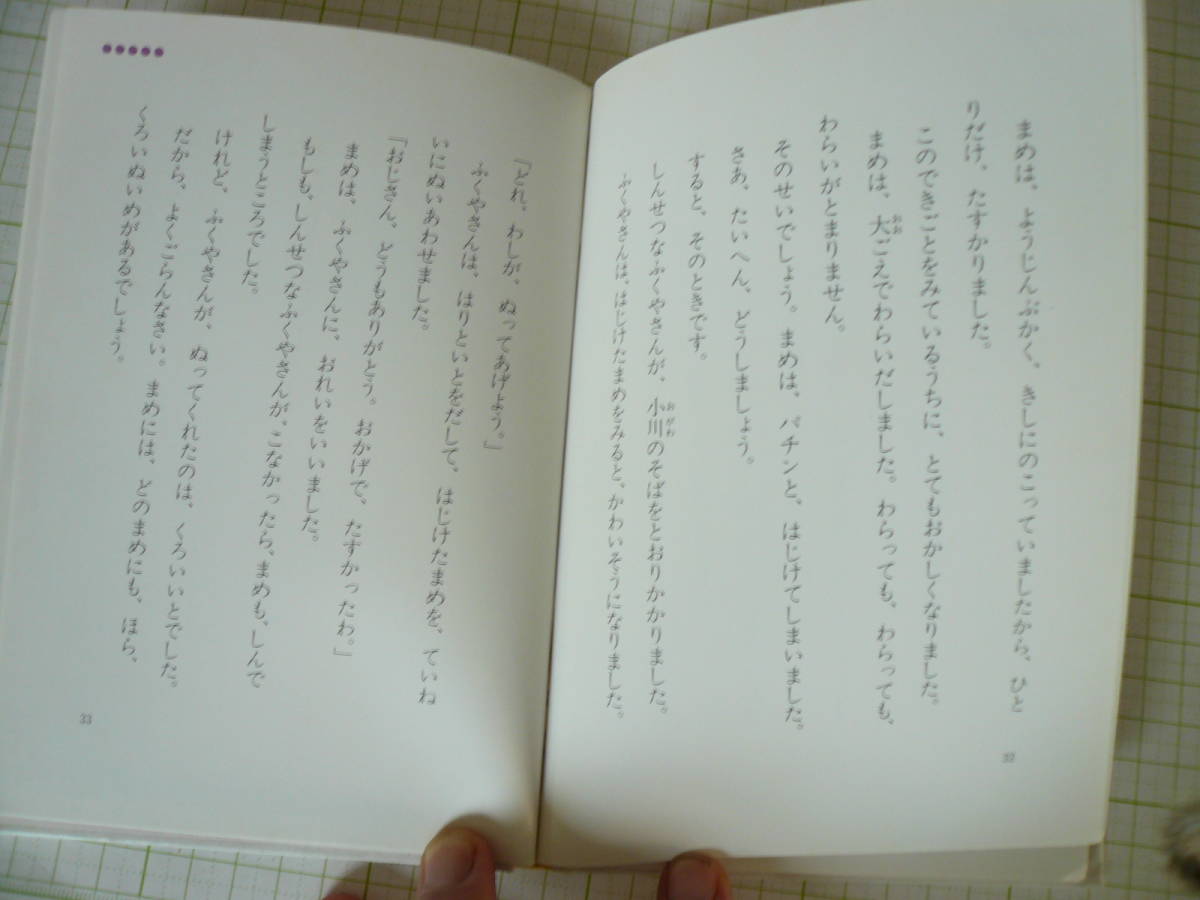 まめは、ようじんぶかく、きしにのこっていましたから、ひと
りだけ、たすかりました。
このできごとをみているうちに、とてもおかしくなりました。
まめは、大ごえでわらいだしました。わらっても、わらっても、
わらいがとまりません。
そのせいでしょう。まめは、パチンと、はじけてしまいました。
さあ、たいへん、どうしましょう。
すると、そのときです。
しんせつなふくやさんが、小川のそばをとおりかかりました。
ふくやさんは、はじけたまめをみると、かわいそうになりました。
32
「どれ、わしが、ぬってあげよう。」
ふくやさんは、はりといとをだして、はじけたまめを、ていね
いにぬいあわせました。
「おじさん、どうもありがとう。おかげで、たすかったわ。」
まめは、ふくやさんに、おれいをいいました。
もしも、しんせつなふくやさんが、こなかったら、まめも、しんで
しまうところでした。
けれど、ふくやさんが、ぬってくれたのは、くろいいとでした。
だから、よくごらんなさい。まめには、どのまめにも、ほら、
くろいぬいめがあるでしょう。
33